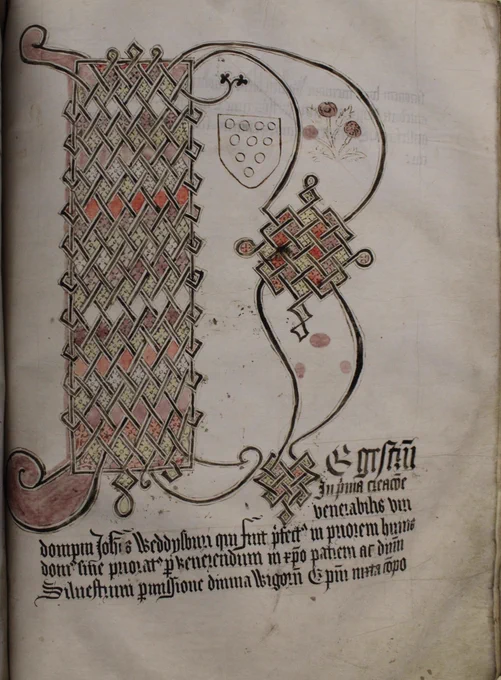 REgistrū
In p̄ma creac̄oe
venerabilis viri
dompni Joh̄is Weddysbury qui fuit p̄fectꝰ in priorem huiꝰ
domꝰ siue prioratꝰ ꝑ venerendum in xp̄o patrem ac dn̄m
Siluestrum ꝑmissione diuina Wigorn̄ Ep̄m iuxta